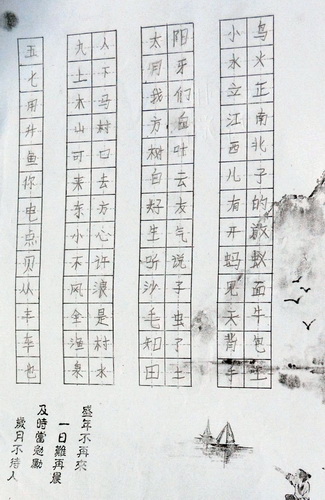 五七用升鱼你电点贝从丰车也
九土木山可来东小不风全渔泉
人下马村口去方心许浪是村水
太月我方树白好生听沙毛知田
阳牙们血叶云友气说子虫了土
小水立江西儿有开蚂见天背手
鸟火正南北子的放蚁面牛包
盛年不再來
一日難再晨
及時當勉勵
歲月不待人